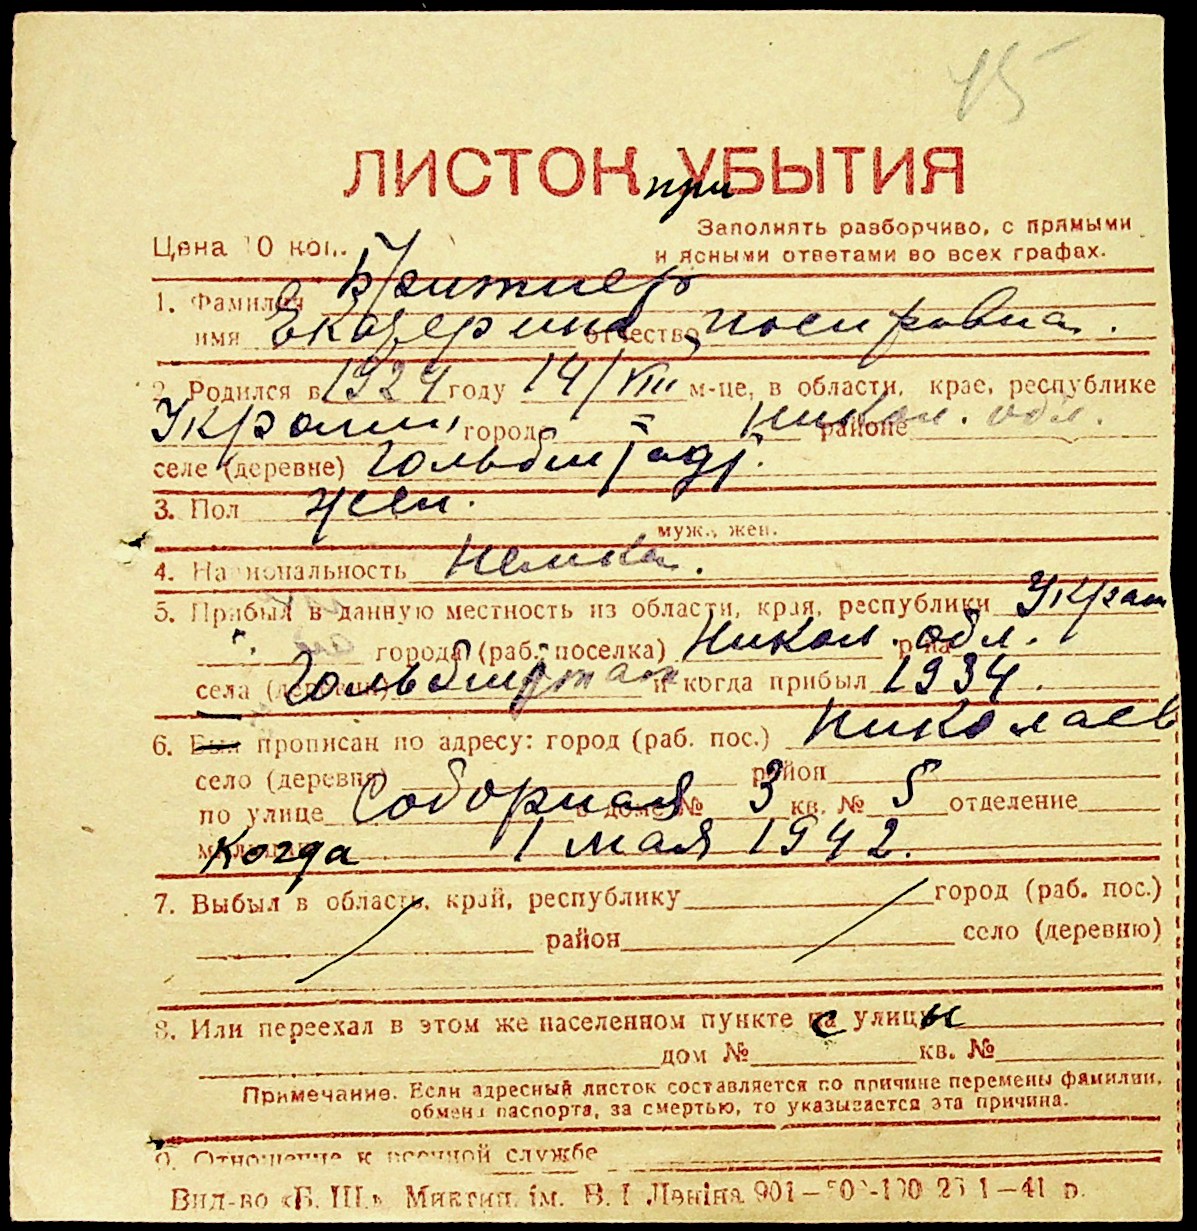 15
ЛИСТОК УБЫТИЯ
при
Заполнять разборчиво, с прямыми
Цена 10 коп. и ясными ответами во всех графах.
1. Фамилия
имя Екатерина отчество
2. Родился в 1924 году 14/VIII м-це, в области, крае, республике
Украин. города Никол. обл. районе
селе (деревне) Гольбштадт.
3. Пол жен.
муж., жен.
4. Национальность Немка.
5. Прибыл в данную местность из области, края, республики Украин
города (раб. поселка) Никол. обл. р-на
села (деревни) Гольбштат и когда прибыл 1934.
6. Был прописан по адресу: город (раб. пос.) Николаев
село (деревня) район
по улице Соборная в доме № 3 кв. № 5 отделение
Когда 1 мая 1942.
7. Выбыл в область, край, республику город (раб. пос.)
район село (деревню)
8. Или переехал в этом же населенном пункте с улицы
дом № кв. №
Примечание. Если адресный листок составляется по причине перемены фамилии,
обмена паспорта, за смертью, то указывается эта причина.
9. Отношение к военной службе
Вид-во «Б. Ш.» Миктип. ім. В. І Леніна 901—500-100 23 1—41 р.